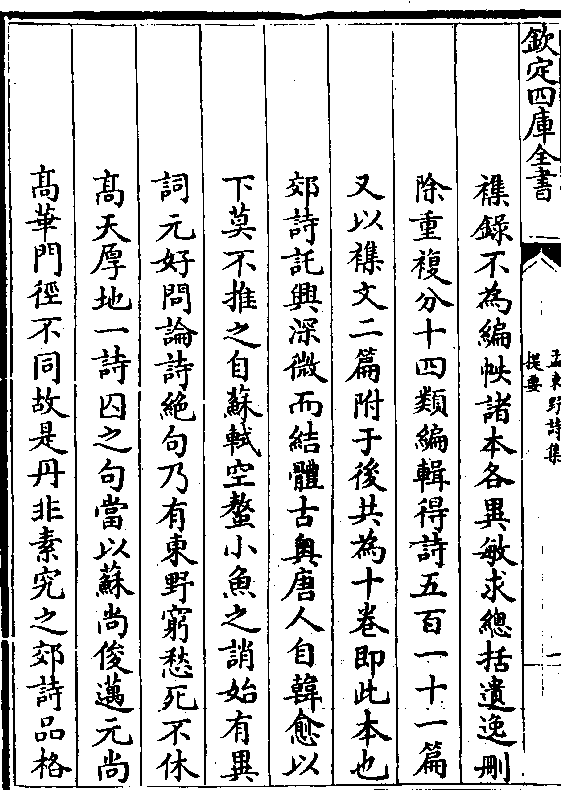 欽定四庫全書
孟東野詩集
提要
一
襍錄不為編帙諸本各異敏求總括遺逸刪
除重複分十四類編輯得詩五百一十一篇
又以襍文二篇附于後共為十卷即此本也
郊詩託興深微而結體古奧唐人自韓愈以
下莫不推之自蘇軾空螯小魚之誚始有異
詞元好問論詩絶句乃有東野窮愁死不休
髙天厚地一詩囚之句當以蘇尚俊邁元尚
髙華門徑不同故是丹非素究之郊詩品格